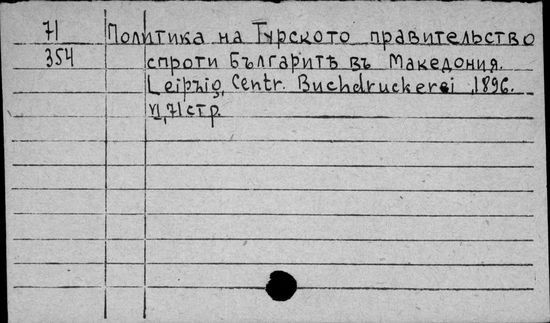 71 Политика на Турското правительство
354 спроти Българитѣ въ Македония.
Leipzig, Centr. Buchdruckerei, 1896.
71 стр.